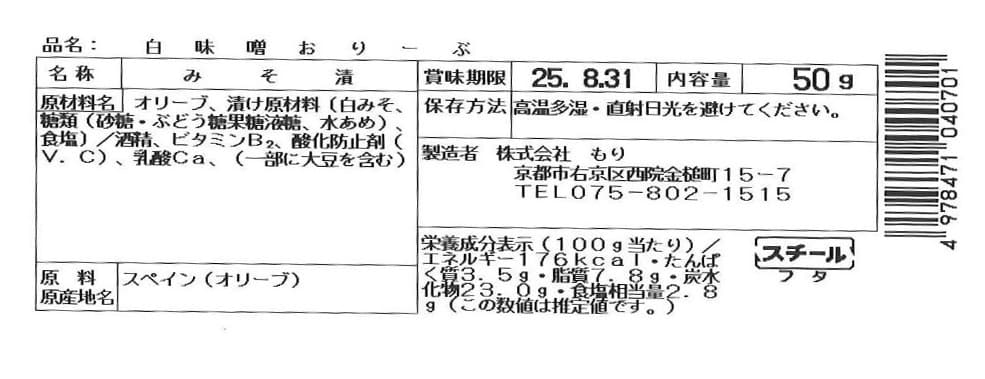 品名： 白味噌おりーぶ
名称 みそ漬 賞味期限 25. 8.31 内容量 50g
原材料名 オリーブ、漬け原材料（白みそ、
糖類（砂糖・ぶどう糖果糖液糖、水あめ）、
食塩〕／酒精、ビタミンB₂、酸化防止剤（
V．C）、乳酸Ca、（一部に大豆を含む）
保存方法 高温多湿・直射日光を避けてください。
製造者 株式会社 もり
京都市右京区西院金槌町15-7
TEL075-802-1515
原料
原産地名 スペイン（オリーブ）
栄養成分表示（100g当たり）／
エネルギー176kcal・たんぱ
く質3．5g・脂質7．8g・炭水
化物23．0g・食塩相当量2．8
g（この数値は推定値です。）
スチール
フタ
4 978471 040701